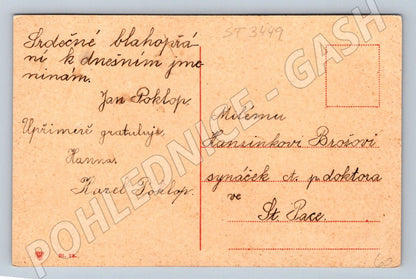 ST 3449
Srdečné blahopřá
ní k dnešním jme
ninám.
Jan Poklop.
Upřímně gratuluje
Hanna
Karel Poklop.
Milému
Hansinkovi Brošovi
synáček ct. p. doktora
ve
St. Pace.
POHLEDNICE - GASH